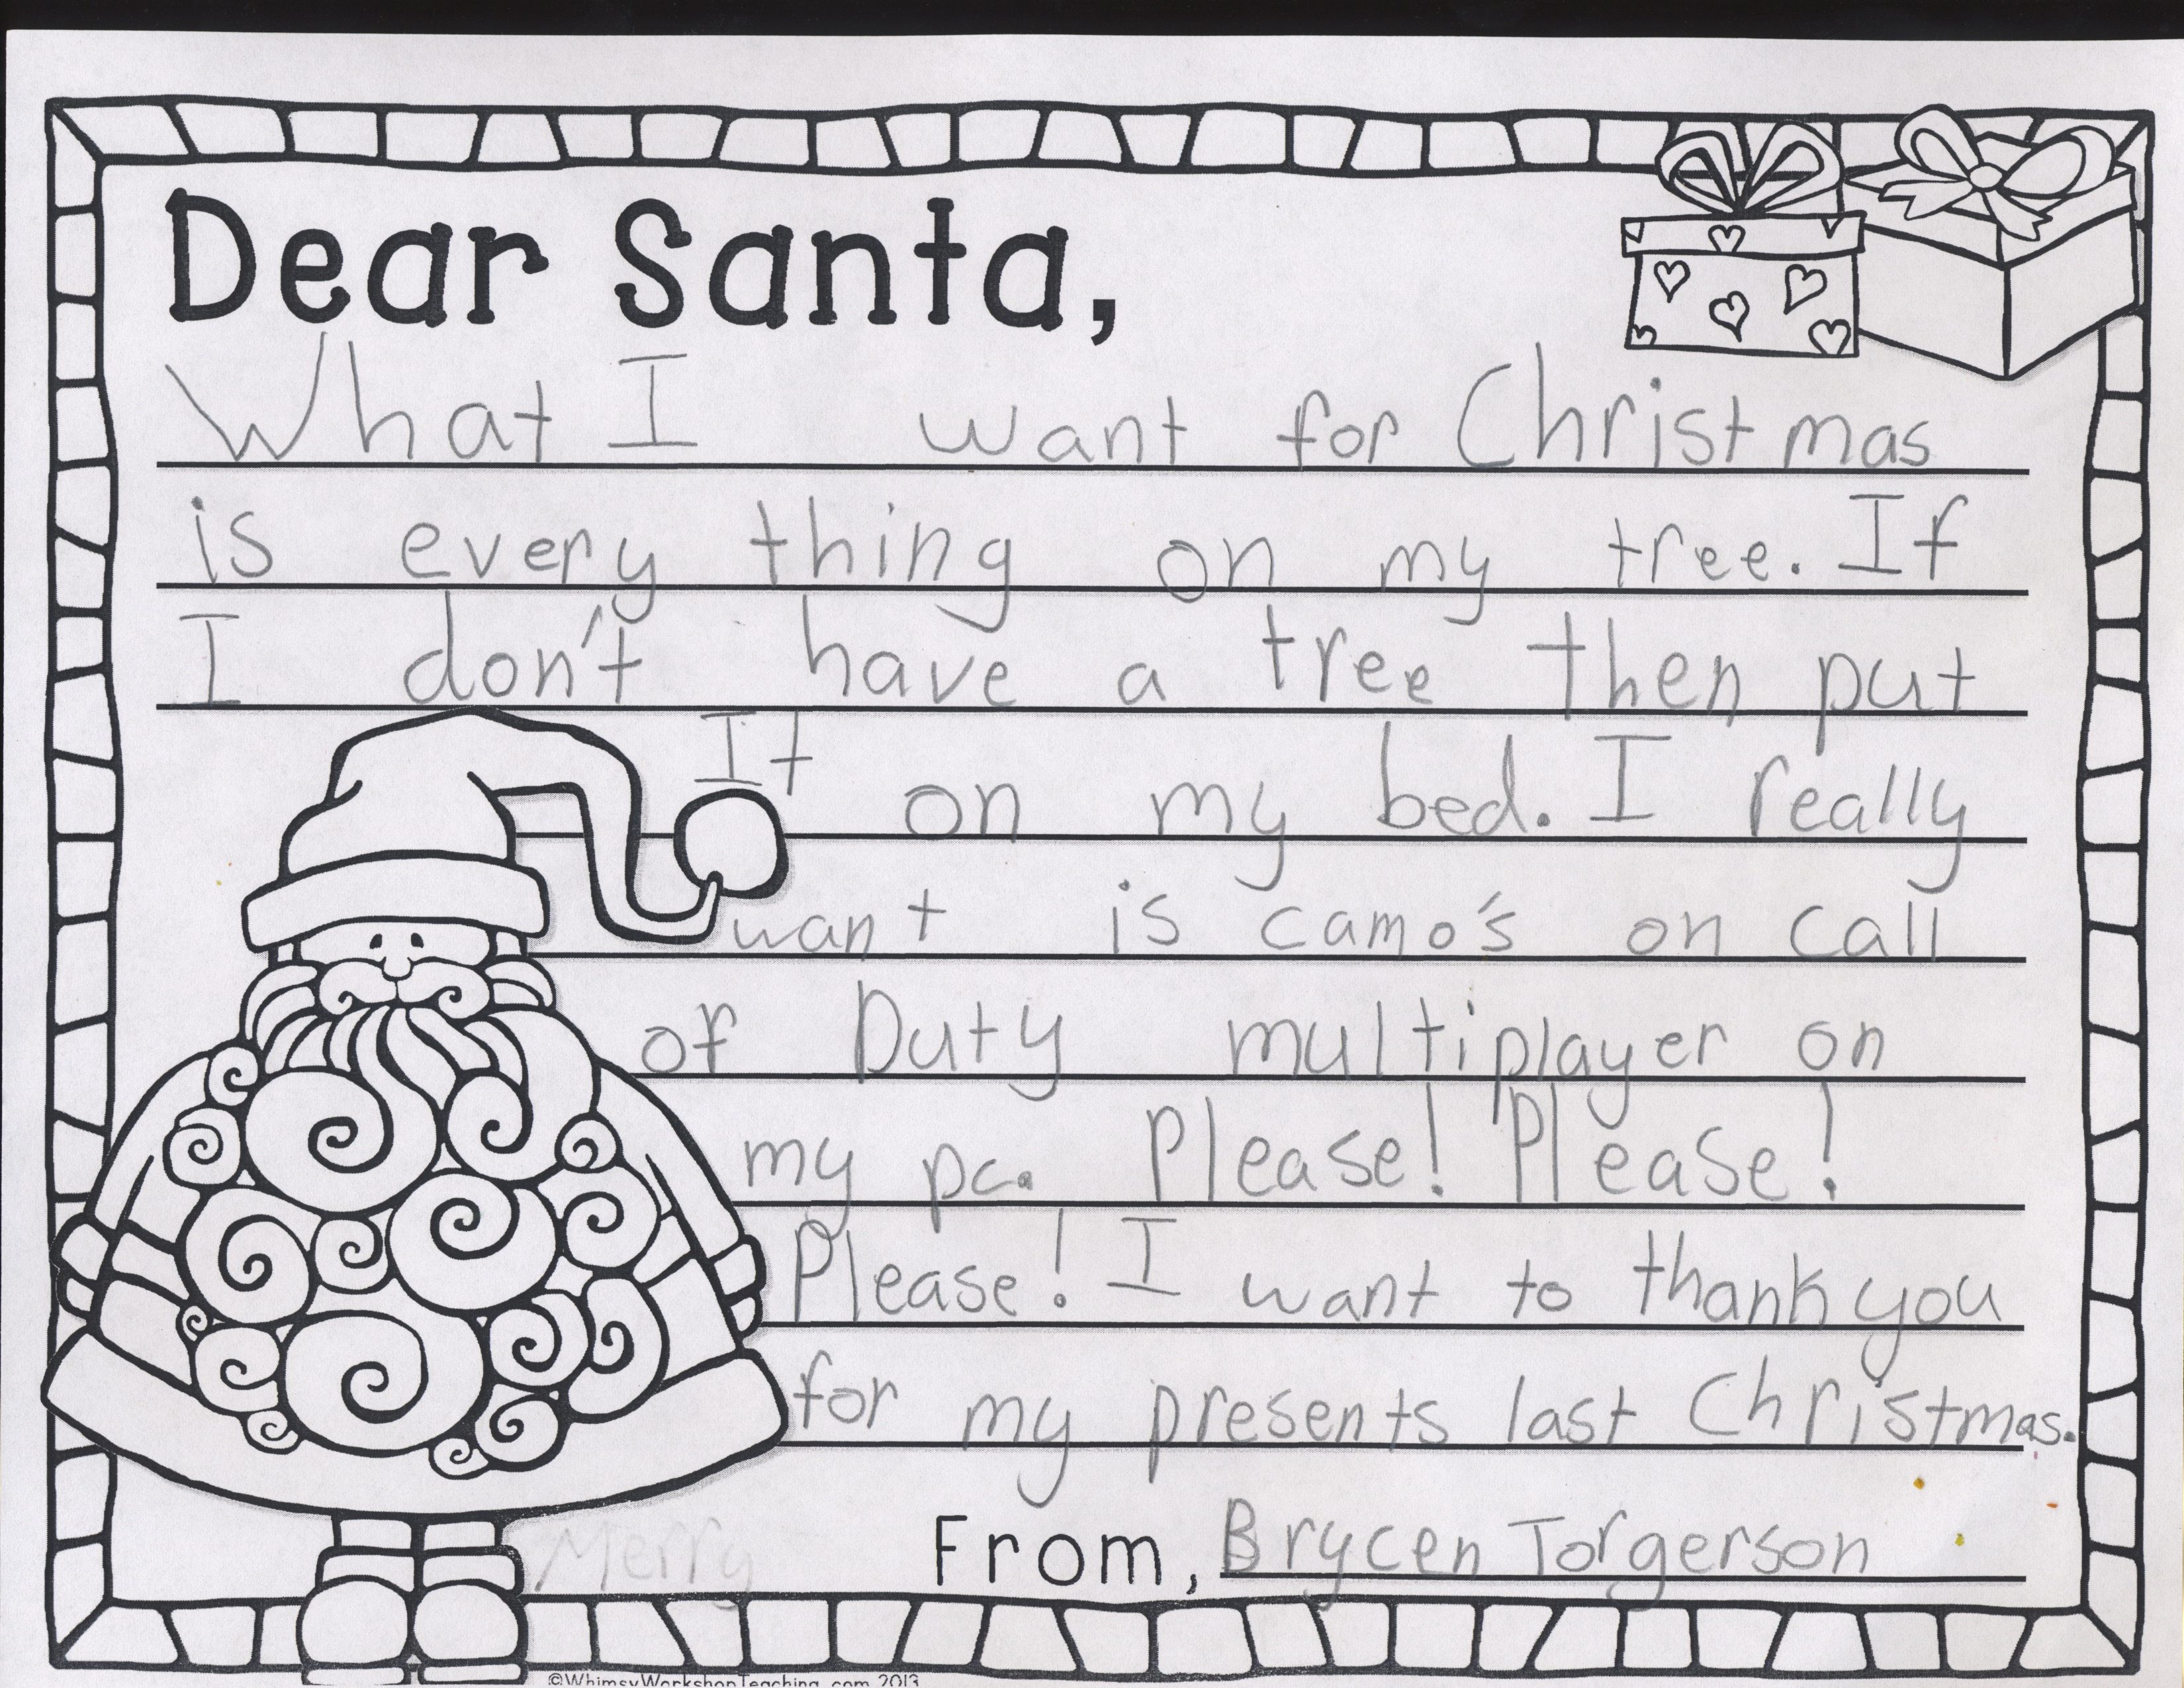 Dear Santa,
What I want for Christmas
is every thing on my tree. If
I don't have a tree then put
It on my bed. I really
want is camo's on call
of Duty multiplayer on
my pc. Please! Please!
Please! I want to thank you
for my presents last Christmas.
Merry
From, Brycen Torgerson
©WhimsyWorkshopTeaching.com 2013